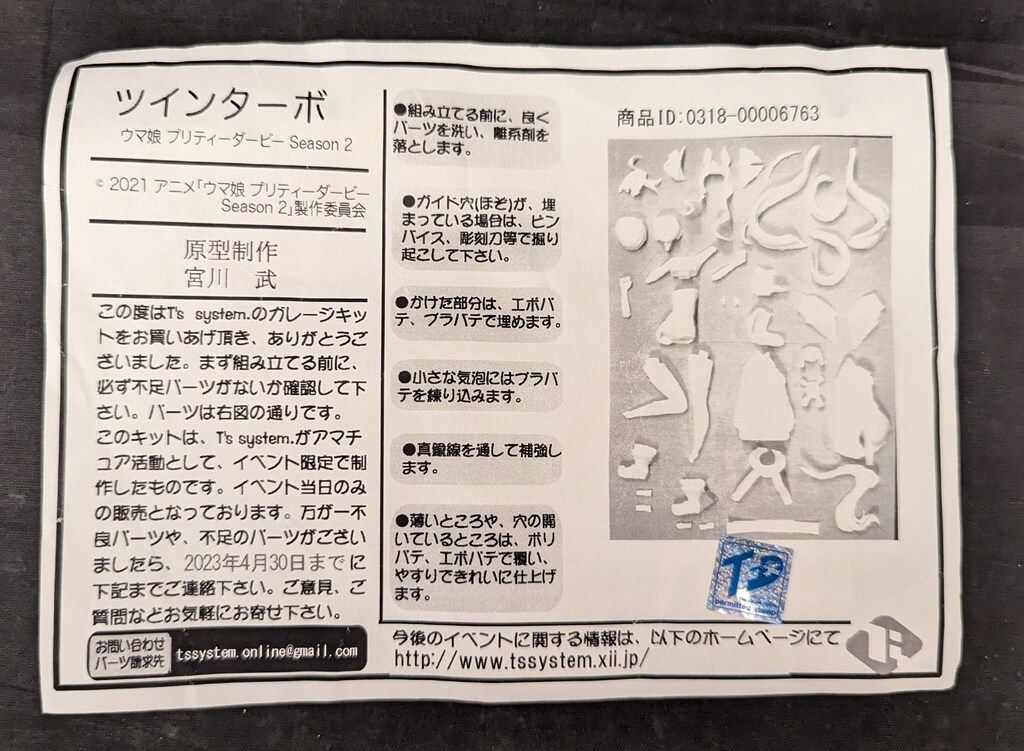 ツインターボ
ウマ娘 プリティーダービー Season 2
© 2021 アニメ「ウマ娘 プリティーダービー
Season 2」製作委員会
原型制作
宮川　武
この度はT's system.のガレージキッ
トをお買いあげ頂き、ありがとうご
ざいました。まず組み立てる前に、
必ず不足パーツがないか確認して下
さい。パーツは右図の通りです。
このキットは、T's system.がアマチ
ュア活動として、イベント限定で制
作したものです。イベント当日のみ
の販売となっております。万が一不
良パーツや、不足のパーツがござい
ましたら、2023年4月30日までに
下記までご連絡下さい。ご意見、ご
質問などお気軽にお寄せ下さい。
お問い合わせ
パーツ請求先
tssystem.online@gmail.com
●組み立てる前に、良く
パーツを洗い、離系剤を
落とします。
●ガイド穴(ほぞ)が、埋
まっている場合は、ピン
バイス、彫刻刀等で掘り
起こして下さい。
●かけた部分は、エポパ
テ、プラパテで埋めます。
●小さな気泡にはプラパ
テを練り込みます。
●真鍮線を通して補強し
ます。
●薄いところや、穴の開
いているところは、ポリ
パテ、エポパテで覆い、
やすりできれいに仕上げ
ます。
商品ID:0318-00006763
permitted stamp
今後のイベントに関する情報は、以下のホームページにて
http://www.tssystem.xii.jp/